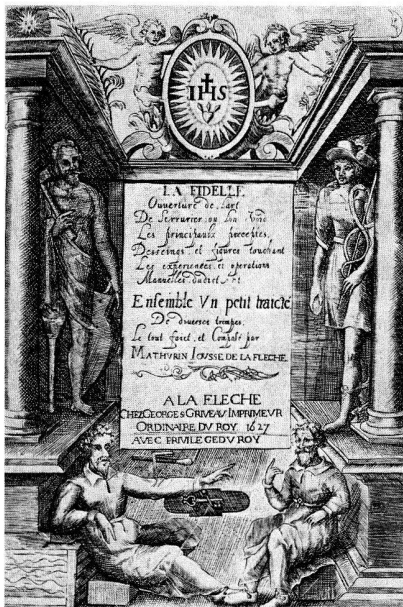 IHS
LA FIDELLE
Ouverture de l'art
De Serrurier, ou lon void
Les principaulx preceptes,
Desseings, et figures touchant
Les experiences et operations
Manuelles dudict Art
Ensemble Vn petit traicté
De diverses trempes,
Le tout faict, et Composé par
MATHVRIN IOUSSE DE LA FLECHE
A LA FLECHE
CHEZ GEORGES GRIVEAV IMPRIMEVR
ORDINAIRE DV ROY 1627
AVEC PRIVILEGE DV ROY